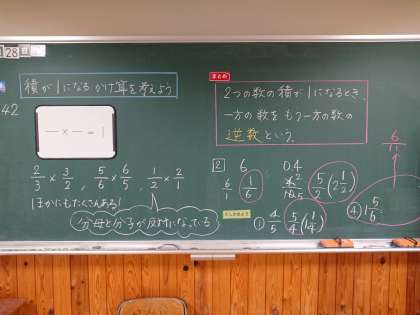 28
積が1になるかけ算を考えよう
42
― × ― = 1
2/3 × 3/2, 5/6 × 6/5, 1/2 × 2/1
ほかにもたくさんある!
分母と分子が反対になっている
まとめ
2つの数の積が1になるとき、
一方の数をもう一方の数の
逆数という。
2 6 0.4
6/1 1/6 5/2 (2 1/2)
① 4/5 5/4 (1 1/4) ④ 1 5/6
6/11